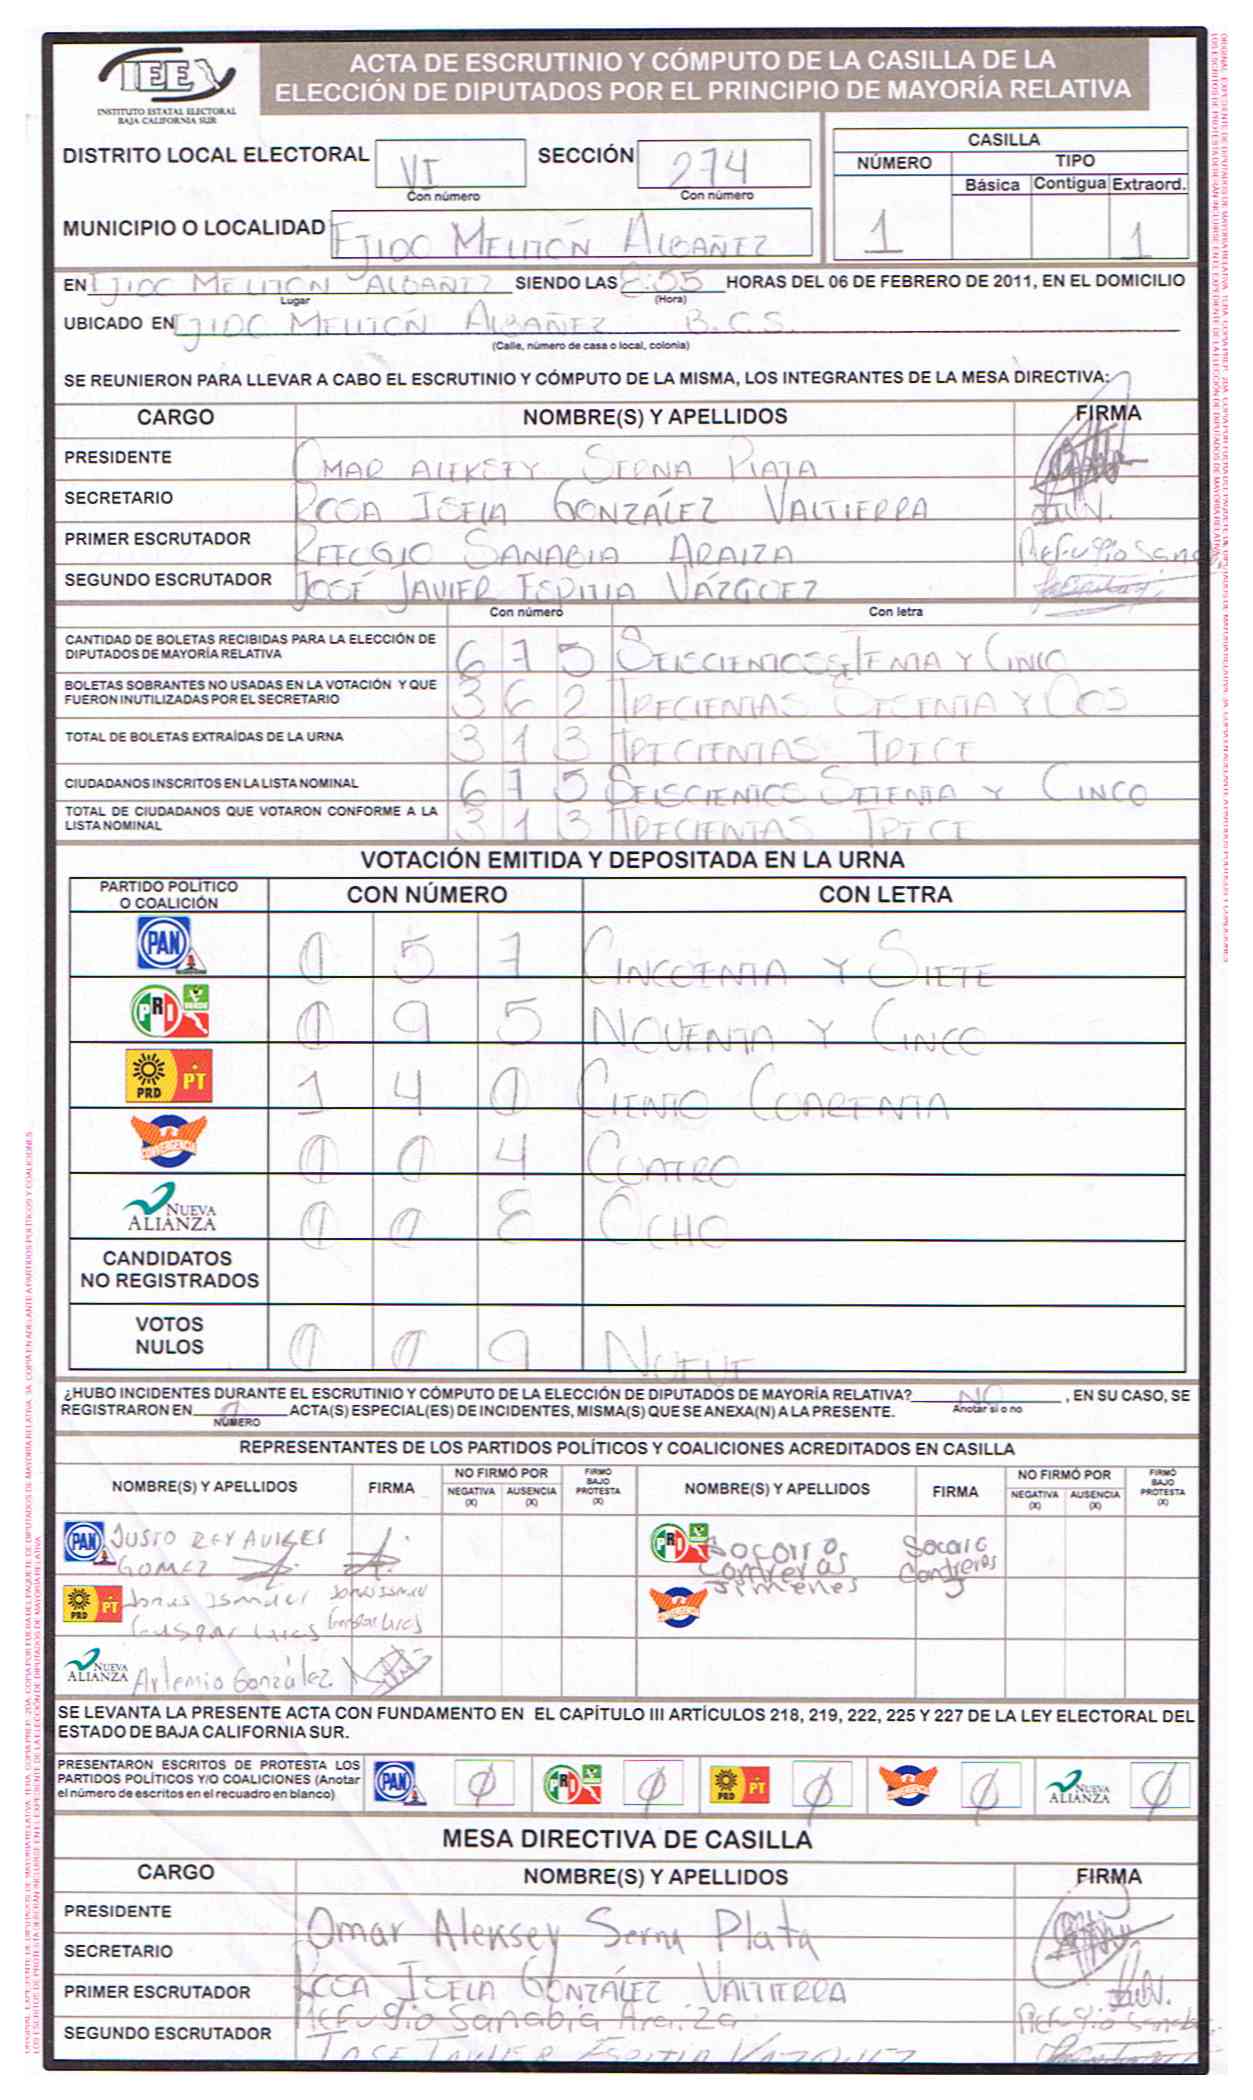 IEE
INSTITUTO ESTATAL ELECTORAL
BAJA CALIFORNIA SUR
ACTA DE ESCRUTINIO Y CÓMPUTO DE LA CASILLA DE LA
ELECCIÓN DE DIPUTADOS POR EL PRINCIPIO DE MAYORÍA RELATIVA
DISTRITO LOCAL ELECTORAL VI SECCIÓN 274
Con número Con número
CASILLA
NÚMERO TIPO
Básica Contigua Extraord.
1 1
MUNICIPIO O LOCALIDAD EJIDO MELITÓN ALBAÑEZ
EN EJIDO MELITÓN ALBAÑEZ SIENDO LAS 8:55 HORAS DEL 06 DE FEBRERO DE 2011, EN EL DOMICILIO
Lugar (Hora)
UBICADO EN EJIDO MELITÓN ALBAÑEZ B.C.S.
(Calle, número de casa o local, colonia)
SE REUNIERON PARA LLEVAR A CABO EL ESCRUTINIO Y CÓMPUTO DE LA MISMA, LOS INTEGRANTES DE LA MESA DIRECTIVA:
CARGO NOMBRE(S) Y APELLIDOS FIRMA
PRESIDENTE OMAR ALEKSEY SERNA PLATA
SECRETARIO ROSA ISELA GONZÁLEZ VALTIERRA
PRIMER ESCRUTADOR REFUGIO SANABIA ARAIZA Refugio Sanab
SEGUNDO ESCRUTADOR JOSÉ JAVIER ESPITIA VÁZQUEZ
Con número Con letra
CANTIDAD DE BOLETAS RECIBIDAS PARA LA ELECCIÓN DE
DIPUTADOS DE MAYORÍA RELATIVA 6 7 5 SEISCIENTOS SETENTA Y CINCO
BOLETAS SOBRANTES NO USADAS EN LA VOTACIÓN Y QUE
FUERON INUTILIZADAS POR EL SECRETARIO 3 6 2 TRECIENTAS SESENTA Y DOS
TOTAL DE BOLETAS EXTRAÍDAS DE LA URNA 3 1 3 TRECIENTAS TRECE
CIUDADANOS INSCRITOS EN LA LISTA NOMINAL 6 7 5 SEISCIENTOS SETENTA Y CINCO
TOTAL DE CIUDADANOS QUE VOTARON CONFORME A LA
LISTA NOMINAL 3 1 3 TRECIENTAS TRECE
VOTACIÓN EMITIDA Y DEPOSITADA EN LA URNA
PARTIDO POLÍTICO
O COALICIÓN CON NÚMERO CON LETRA
PAN 0 5 7 CINCUENTA Y SIETE
PRI VERDE 0 9 5 NOVENTA Y CINCO
PRD PT 1 4 0 CIENTO CUARENTA
CONVERGENCIA 0 0 4 CUATRO
NUEVA ALIANZA 0 0 8 OCHO
CANDIDATOS
NO REGISTRADOS
VOTOS
NULOS 0 0 9 NUEVE
¿HUBO INCIDENTES DURANTE EL ESCRUTINIO Y CÓMPUTO DE LA ELECCIÓN DE DIPUTADOS DE MAYORÍA RELATIVA? NO, EN SU CASO, SE
Anotar si o no
REGISTRARON EN 0 ACTA(S) ESPECIAL(ES) DE INCIDENTES, MISMA(S) QUE SE ANEXA(N) A LA PRESENTE.
NÚMERO
REPRESENTANTES DE LOS PARTIDOS POLÍTICOS Y COALICIONES ACREDITADOS EN CASILLA
NOMBRE(S) Y APELLIDOS FIRMA NO FIRMÓ POR NEGATIVA (X) AUSENCIA (X) FIRMÓ BAJO PROTESTA (X) NOMBRE(S) Y APELLIDOS FIRMA NO FIRMÓ POR NEGATIVA (X) AUSENCIA (X) FIRMÓ BAJO PROTESTA (X)
PAN JUSTO REY AVILES
GOMEZ
PRI VERDE Socorro Contreras Jimenes Socorro Contreras J
PRD PT Jonas Ismael
Gaspar
CONVERGENCIA
NUEVA ALIANZA Artemio González
SE LEVANTA LA PRESENTE ACTA CON FUNDAMENTO EN EL CAPÍTULO III ARTÍCULOS 218, 219, 222, 225 Y 227 DE LA LEY ELECTORAL DEL
ESTADO DE BAJA CALIFORNIA SUR.
PRESENTARON ESCRITOS DE PROTESTA LOS
PARTIDOS POLÍTICOS Y/O COALICIONES (Anotar
el número de escritos en el recuadro en blanco)
PAN Ø PRI VERDE Ø PRD PT Ø CONVERGENCIA Ø NUEVA ALIANZA Ø
MESA DIRECTIVA DE CASILLA
CARGO NOMBRE(S) Y APELLIDOS FIRMA
PRESIDENTE Omar Aleksey Serna Plata
SECRETARIO ROSA ISELA GONZÁLEZ VALTIERRA
PRIMER ESCRUTADOR Refugio Sanabia Araiza Refugio Sanab
SEGUNDO ESCRUTADOR JOSE JAVIER ESPITIA VAZQUEZ